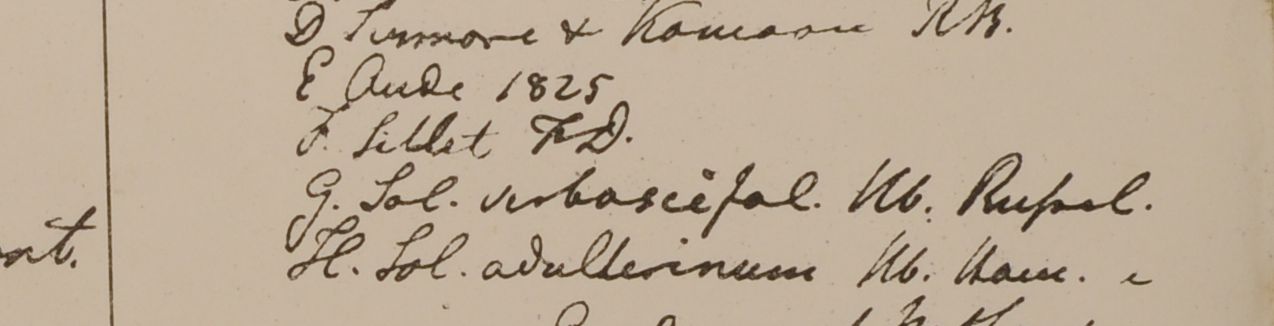 D Sirmore & Kamaon RB.
E Oude 1825
F. Sillet F.D.
G. Sol. verbascifol. Hb. Russel.
H. Sol. adulterinum Hb. Ham. e
nt.